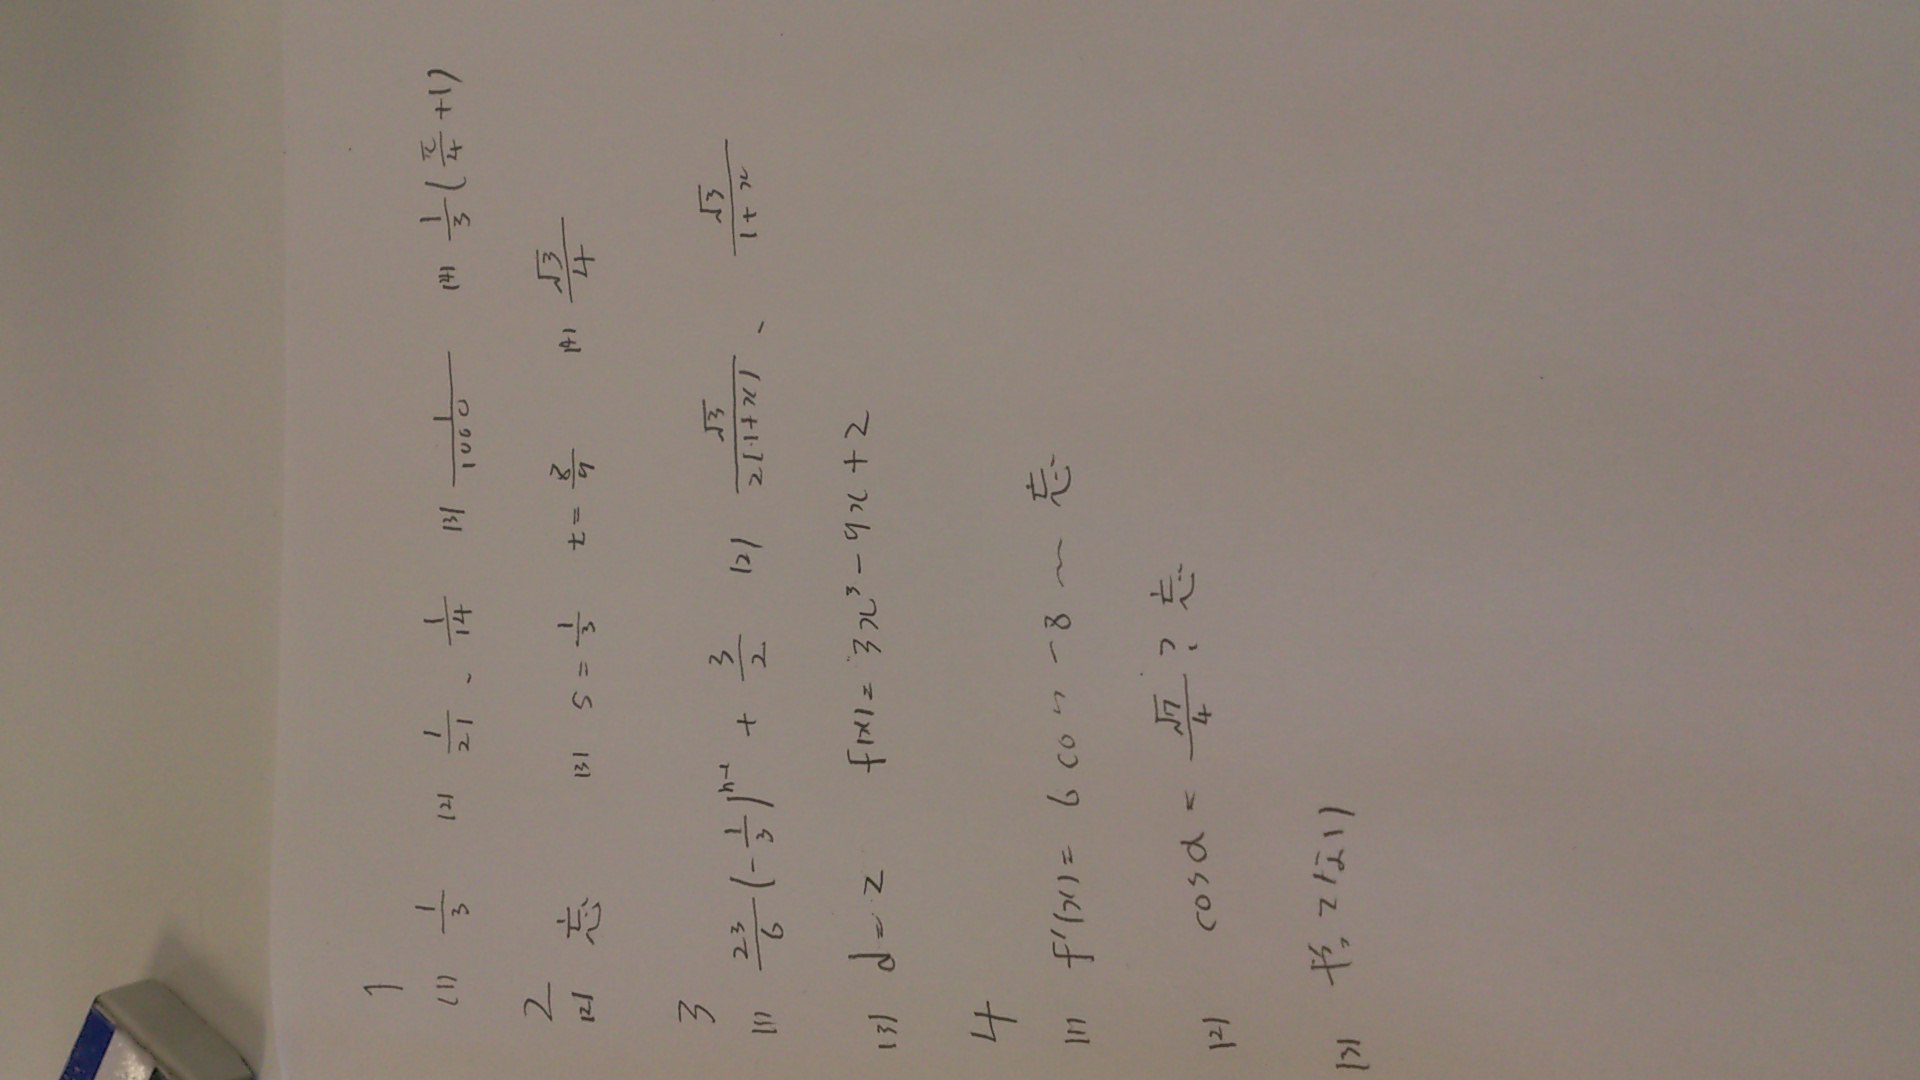 1
(1) 1/3 (2) 1/21、1/14 (3) 1/1000 (4) 1/3(π/4+1)
2
(2) 忘 (3) s=1/3 t=8/9 (4) √3/4
3
(1) 23/6(-1/3)^(n-1) + 3/2 (2) √3/2(1+x)、√3/(1+x)
(3) d=2 f(x)=3x³-9x+2
4
(1) f'(x)= 6 co -8 〜 忘
(2) cosα = √7/4? 忘
(3)